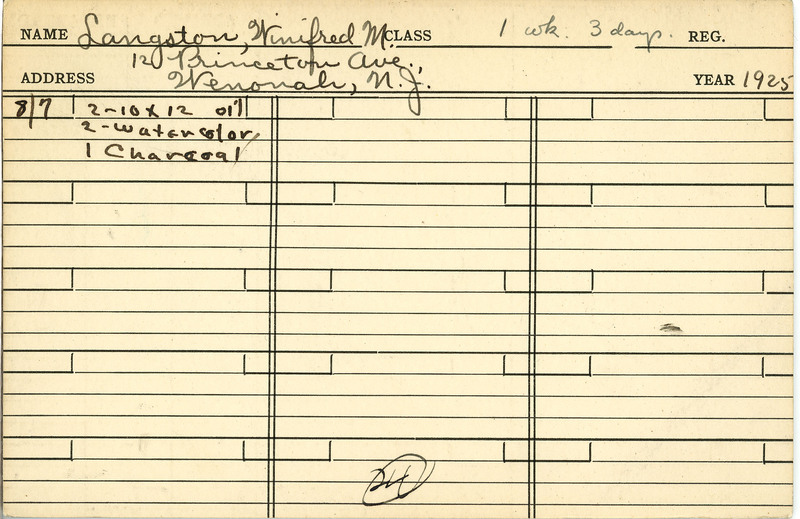 NAME Langston, Winifred M. CLASS 1 wk. 3 days. REG.
12 Princeton Ave.,
ADDRESS Wenonah, N.J. YEAR 1925
8/7 2-10 x 12 oil
2-watercolor
1 Charcoal